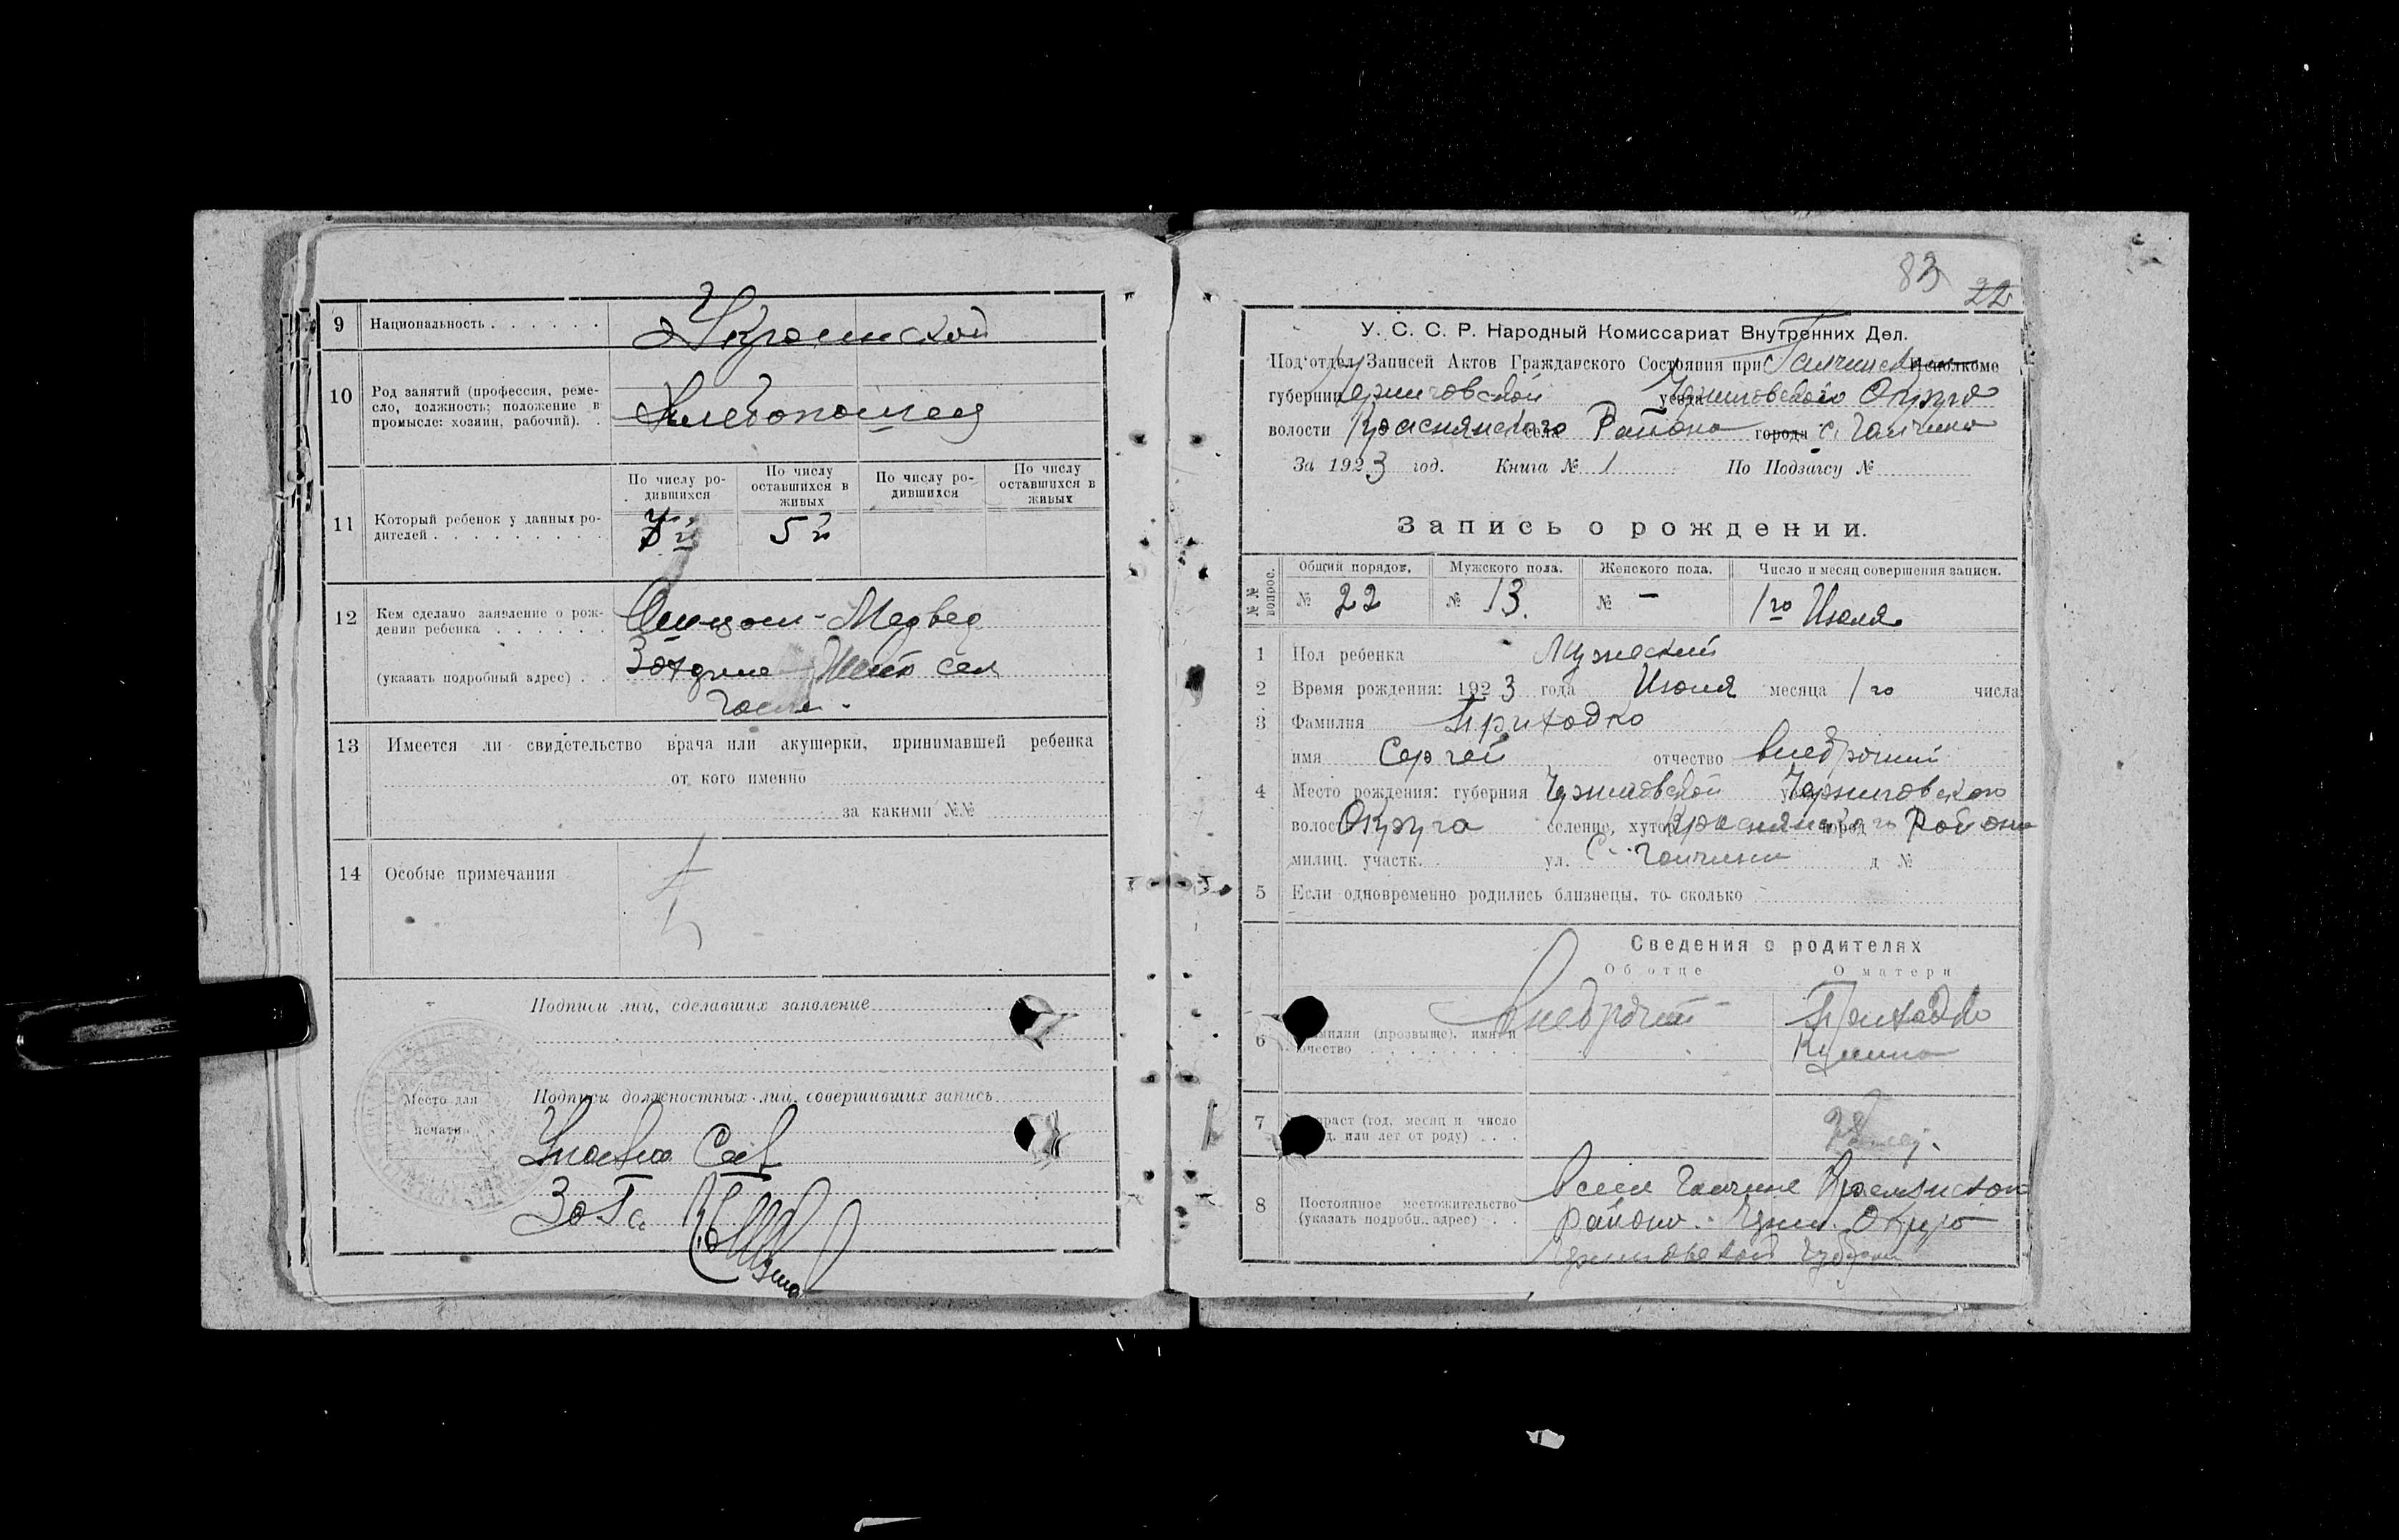 9 Национальность . . . . . . Украинской
10 Род занятий (профессия, реме-
сло, должность; положение в
промысле: хозяин, рабочий). . Хлебопашец
По числу ро-
дившихся
По числу
оставшихся в
живых
По числу ро-
дившихся
По числу
оставшихся в
живых
11 Который ребенок у данных ро-
дителей . . . . . . . . . 7й 5й
12 Кем сделано заявление о рож-
дении ребенка . . . . . . Отцом - Медвед
(указать подробный адрес) . .
13 Имеется ли свидетельство врача или акушерки, принимавшей ребенка
от кого именно
за какими №№
14 Особые примечания
Подписи лиц, сделавших заявление
Место для
печати
Подписи должностных лиц, совершивших запись
83 22
У. С. С. Р. Народный Комиссариат Внутренних Дел.
Под'отдел Записей Актов Гражданского Состояния при Исполкоме
губернии Черниговской уезда Черниговского Округа
волости Краснянского села Района города с.
За 1923 год. Книга № 1 По Подзагсу №
Запись о рождении.
№ №
вопрос.
Общий порядов. Мужского пола. Женского пола. Число и месяц совершения записи.
№ 22 № 13. № - 1го Июля
1 Пол ребенка Мужеский
2 Время рождения: 1923 года Июля месяца 1го числа
3 Фамилия Приходко
имя Сергей отчество внебрачний
4 Место рождения: губерния Черниговской Черниговского
волос Округа селение, хутор Краснянского город Района
милиц. участк. ул. С. д №
5 Если одновременно родились близнецы, то сколько
Сведения о родителях
Об отце О матери
6 Фамилия (прозвыще), имя и
отчество . . . . . . . . . Внебрачний Приходко
7 Возраст (год, месяц и число
рожд. или лет от роду) . . . 28 лет.
8 Постоянное местожительство
(указать подробн. адрес) . . В селе Краснянского
района Черн. Округа
Черниговской Губернии